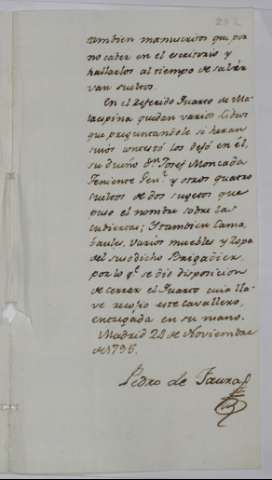 tambien manuscritos que por
no caber en el escritorio y
hallarlos al tiempo de salir
van sueltos.
En el referido Quarto de Ma-
laspina quedan varios Libros
que preguntandole si heran
suios contextó los dejó en él,
su dueño Dn. Josef Moncada
Teniente Genl. y otros quatro
sueltos de dos sugetos que
puso el nombre sobre las
cubiertas; y tambien Cama
baules, varios muebles y ropa
del susodicho Brigadier,
por lo q.e se dió disposicion
de cerrar el Quarto cuia lla-
ve recojió este cavallero,
entregada en su mano.
Madrid 22 de Noviembre
de 1795.
Pedro de